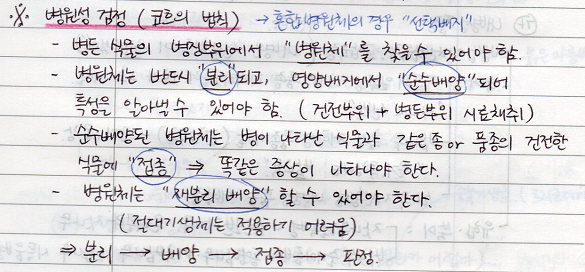 ※. 병원성 검정 (코흐의 법칙) → 혼합병원체의 경우 "선택배지"
- 병든 식물의 병징부위에서 "병원체"를 찾을 수 있어야 함.
- 병원체는 반드시 "분리"되고, 영양배지에서 "순수배양"되어
특성을 알아낼 수 있어야 함. (건전부위 + 병든부위 시료채취)
- 순수배양된 병원체는 병이 나타난 식물과 같은종 or 품종의 건전한
식물에 "접종" ⇒ 똑같은 증상이 나타나야 한다.
- 병원체는 "재분리 배양" 할 수 있어야 한다.
(절대기생체는 적용하기 어려움)
⇒ 분리 → 배양 → 접종 → 판정.